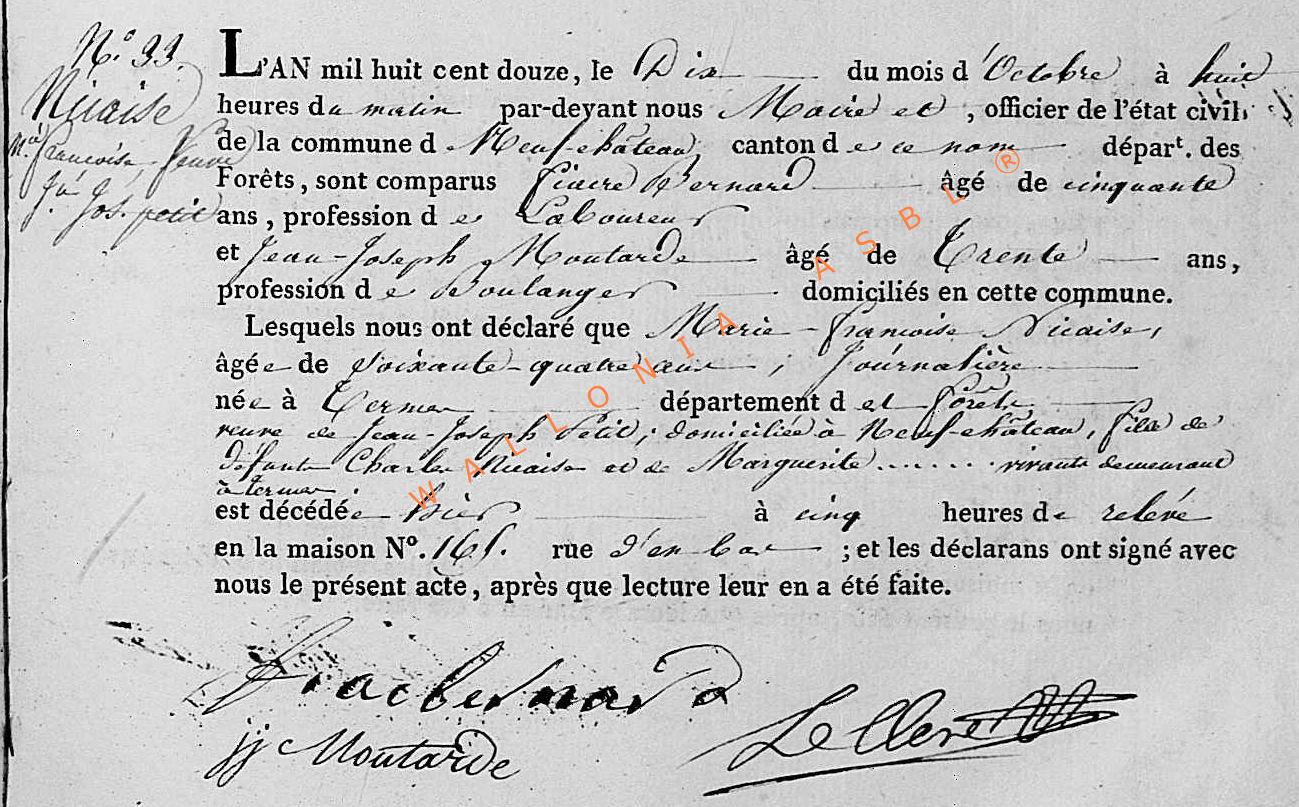 N.º 33.
Nicaise
M.ie françoise, Veuve
J.n Jos. petit
L'AN mil huit cent douze, le Dix du mois d'Octobre à huit
heures du matin par-devant nous Maire et, officier de l'état civil
de la commune de Neufchâteau, canton de ce nom départ. des
Forêts, sont comparus fiacre Bernard âgé de cinquante
ans, profession de Laboureur
et Jean-Joseph Moutarde âgé de Trente ans,
profession de Boulanger domiciliés en cette commune.
Lesquels nous ont déclaré que Marie-françoise Nicaise,
âgée de soixante-quatre ans, Journalière
née à Termes département des forêts
veuve de Jean-Joseph Petit; domiciliée à Neufchâteau, fille de
défunts Charles Nicaise et de Marguerite ........ vivants demeurant
à termes
est décédée hier à cinq heures de relevé
en la maison Nº. 165. rue d'en bas ; et les déclarans ont signé avec
nous le présent acte, après que lecture leur en a été faite.
fiacbernard
jj Moutarde
LeClerc
WALLONIA ASBL ®